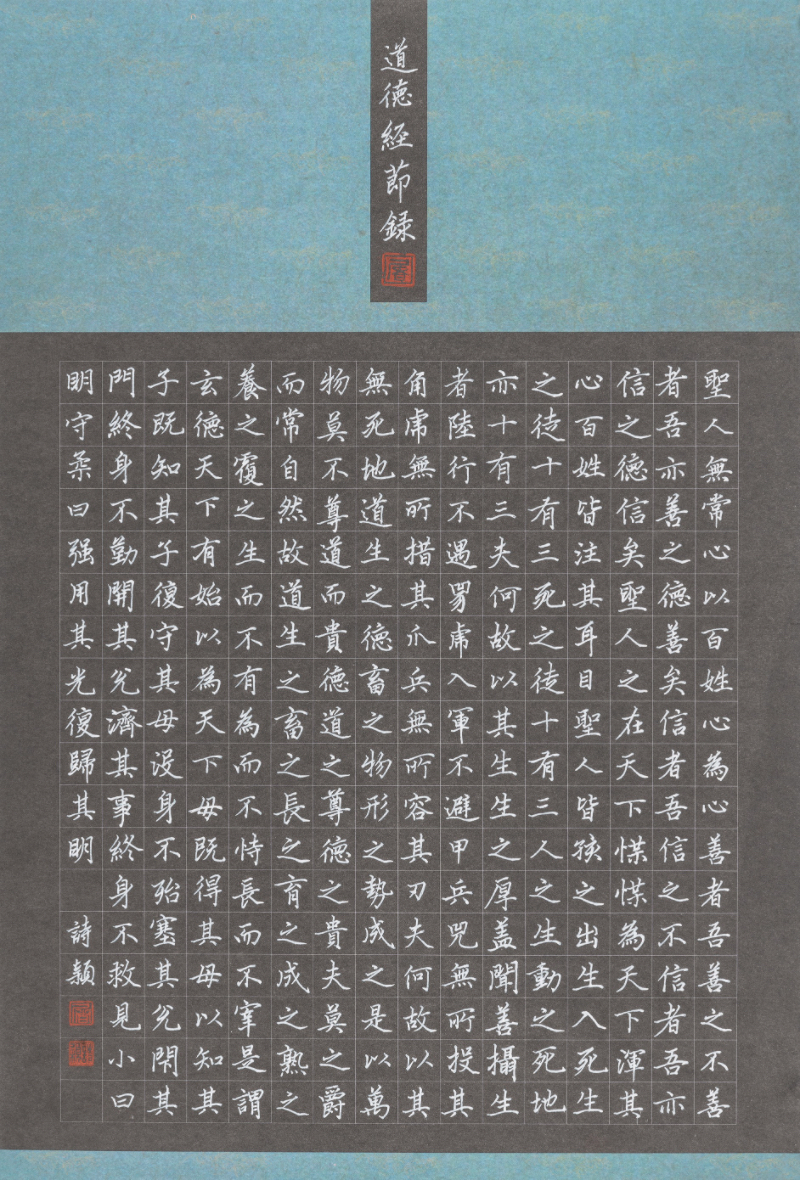 道德經節録
聖人無常心以百姓心為心善者吾善之不善
者吾亦善之德善矣信者吾信之不信者吾亦
信之德信矣聖人之在天下惵惵為天下渾其
心百姓皆注其耳目聖人皆孩之出生入死生
之徒十有三死之徒十有三人之生動之死地
亦十有三夫何故以其生生之厚盖聞善攝生
者陸行不遇兕虎入軍不避甲兵兕無所投其
角虎無所措其爪兵無所容其刃夫何故以其
無死地道生之德畜之物形之勢成之是以萬
物莫不尊道而貴德道之尊德之貴夫莫之爵
而常自然故道生之畜之長之育之成之熟之
養之覆之生而不有為而不恃長而不宰是謂
玄德天下有始以為天下母既得其母以知其
子既知其子復守其母没身不殆塞其兌閇其
門終身不勤開其兌濟其事終身不救見小曰
明守柔曰强用其光復歸其明 詩穎